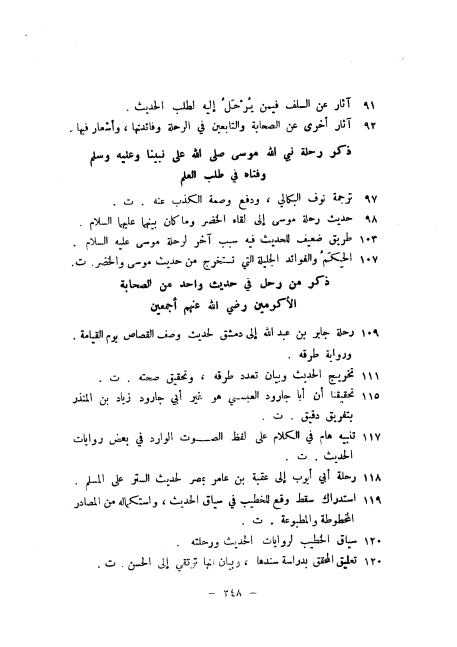 ٩١ آثار عن السلف فيمن يُرْحَلُ إليه لطلب الحديث .
٩٢ آثار أخرى عن الصحابة والتابعين في الرحلة وفائدتها ، وأشعار فيها .
ذكر رحلة نبي الله موسى صلى الله على نبينا وعليه وسلم
وفتاه في طلب العلم
٩٧ ترجمة نوف البكالي ، ودفع وصمة الكذب عنه . ت .
٩٨ حديث رحلة موسى إلى لقاء الخضر وما كان بينهما عليهما السلام .
١٠٣ طريق ضعيف للحديث فيه سبب آخر لرحلة موسى عليه السلام .
١٠٧ الحِكَمُ والفوائد الجليلة التي تستخرج من حديث موسى والخضر . ت .
ذكر من رحل في حديث واحد من الصحابة
الأكرمين رضي الله عنهم أجمعين
١٠٩ رحلة جابر بن عبد الله إلى دمشق لحديث وصف القصاص يوم القيامة .
ورواية طرقه .
١١١ تخريج الحديث وبيان تعدد طرقه ، وتحقيق صحته . ت .
١١٥ تحقيقنا أن أبا جارود العبسي هو غير أبي جارود زياد بن المنذر
بتفريق دقيق . ت .
١١٧ تنبيه هام في الكلام على لفظ الصوت الوارد في بعض روايات
الحديث . ت .
١١٨ رحلة أبي أيوب إلى عقبة بن عامر بمصر لحديث الستر على المسلم .
١١٩ استدراك سقط وقع للخطيب في سياق الحديث ، واستكماله من المصادر
المخطوطة والمطبوعة . ت .
١٢٠ سياق الخطيب لروايات الحديث ورحلته .
١٢٠ تعليق المحقق بدراسة سندها ، وبيان انها ترتقي إلى الحسن . ت .
– ٢٤٨ –